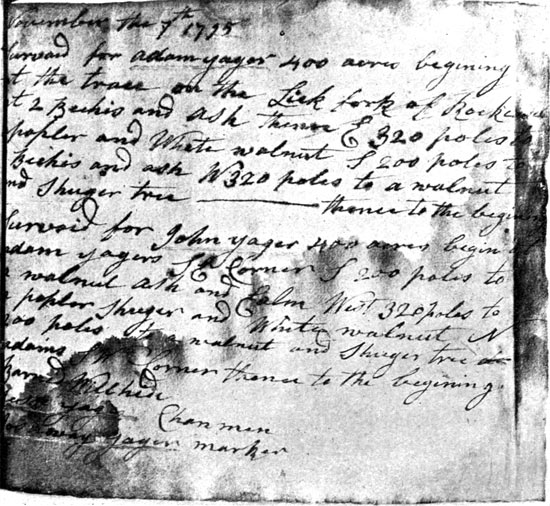 November the 7th 1795
Survaid for adam yager 400 acres begining
at the trase on the Lick fork of
at 2 Bechis and ash thence E 320 poles to
popler and White walnut S 200 poles to
Bechis and ash W 320 poles to a walnut
and Shuger tree thence to the begining
Survaid for John yager 400 acres begin
adam yagers Corner S 200 poles to
a walnut ash and Ealm West 320 poles to
a popler Shuger and White walnut N
200 poles to a walnut and Shuger tree
adams Corner thence to the begining.
Chan men
yager marker